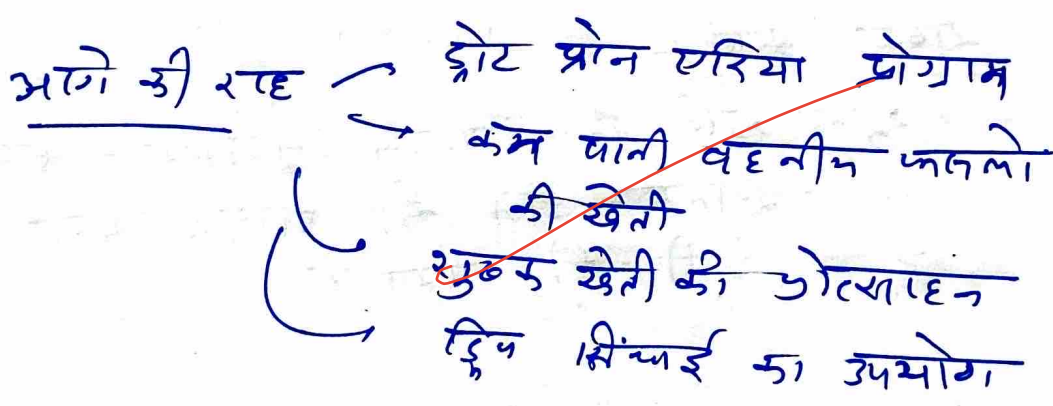 आगे की राह → ड्रोट प्रोन एरिया प्रोग्राम
→ कम पानी वहनीय फसलो
की खेती
शुष्क खेती की प्रोत्साहन
ड्रिप सिंचाई का उपयोग